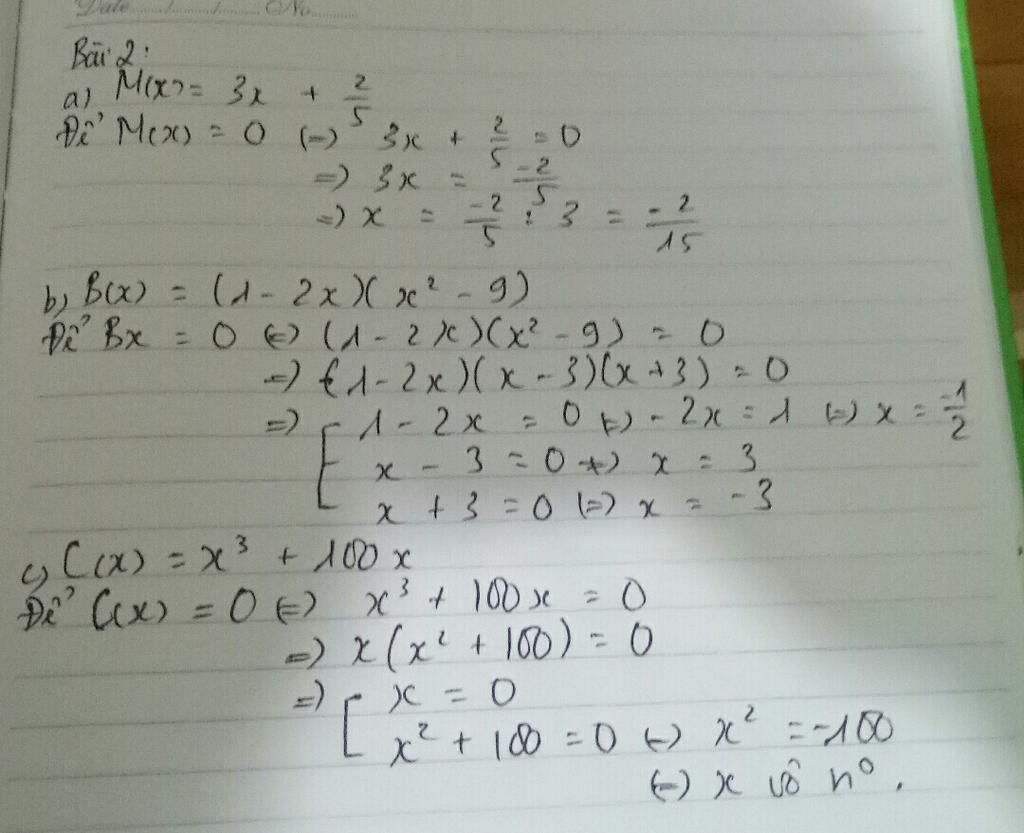 Date / / No
Bài 2:
a) M(x) = 3x + 2/5
Để M(x) = 0 (=) 3x + 2/5 = 0
=) 3x = -2/5
=) x = -2/5 : 3 = -2/15
b) B(x) = (1 - 2x)(x² - 9)
Để Bx = 0 (=) (1 - 2x)(x² - 9) = 0
=) (1 - 2x)(x - 3)(x + 3) = 0
=) [ 1 - 2x = 0 (=) - 2x = 1 (=) x = -1/2
x - 3 = 0 (=) x = 3
x + 3 = 0 (=) x = -3
c) C(x) = x³ + 100x
Để C(x) = 0 (=) x³ + 100x = 0
=) x(x² + 100) = 0
=) [ x = 0
x² + 100 = 0 (=) x² = -100
(=) x vô n⁰.